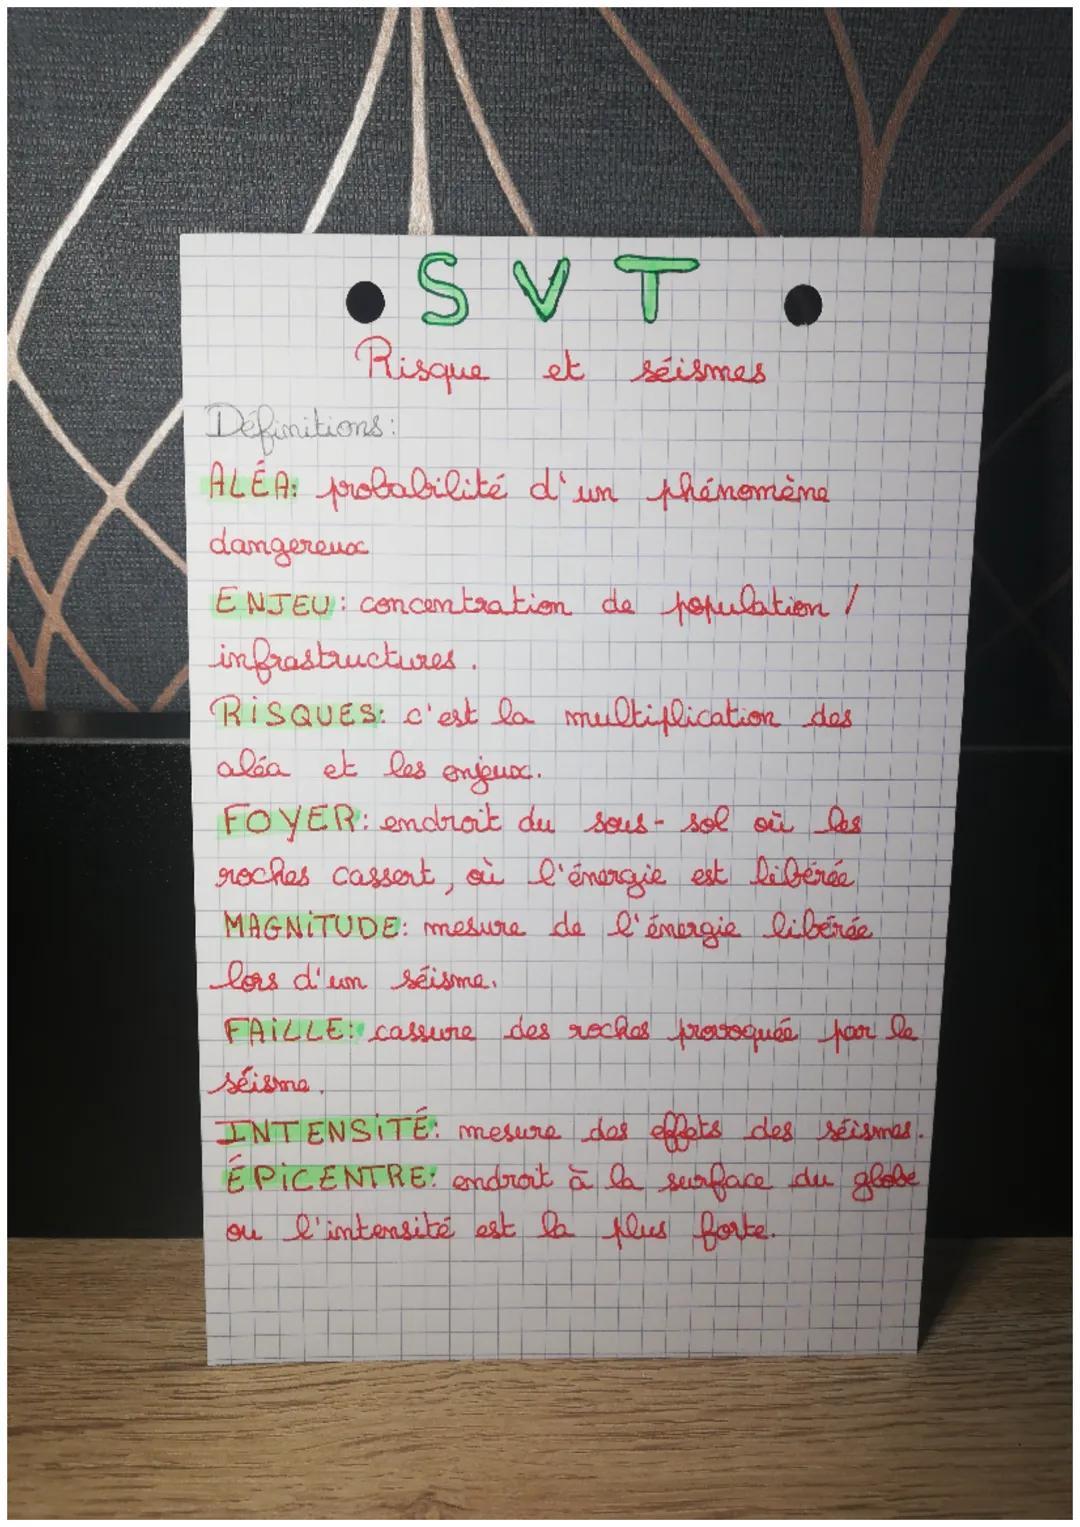 SVT
Risque et séismes
Définitions:
ALÉA: probabilité d'un phénomène
dangereux
ENJEU: concentration de population /
infrastructures.
RiSQUES: c'est la multiplication des
aléa et les enjeux.
FOYER: endroit du sous-sol où les
roches cassent, où l'énergie est libérée
MAGNiTUDE: mesure de l'énergie libérée
lors d'un séisme.
FAiLLE: cassure des roches provoquée par le
séisme.
INTENSiTÉ: mesure des effets des séismes.
ÉPiCENTRE: endroit à la surface du globe
ou l'intensité est la plus forte.